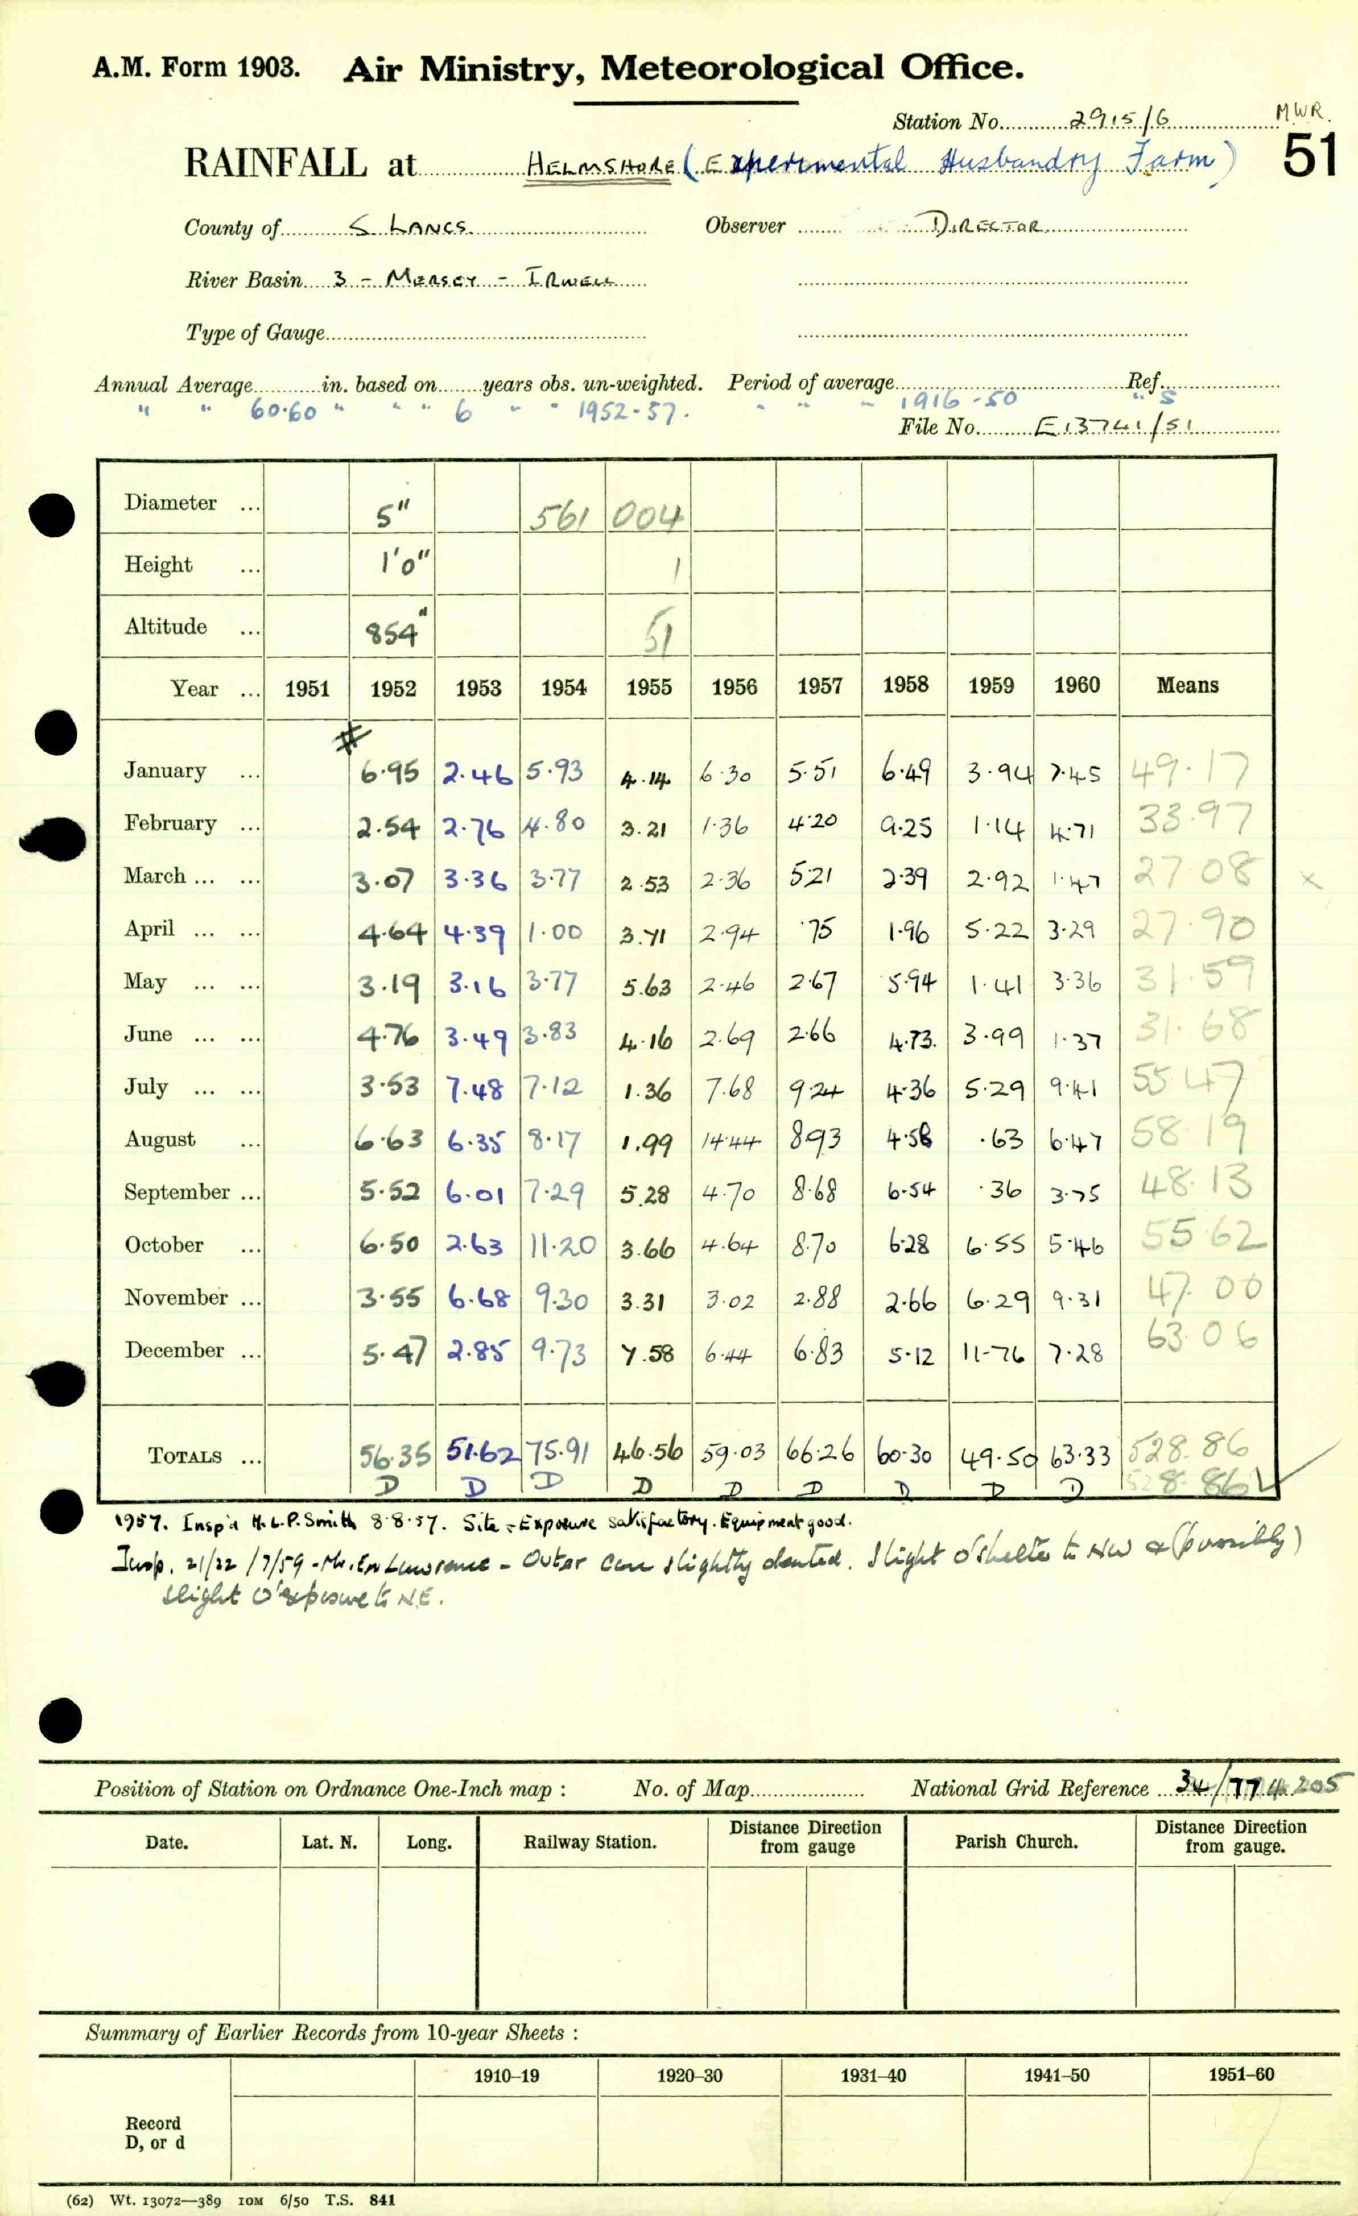 A.M. Form 1903. Air Ministry, Meteorological Office.
MWR.
Station No. 2915/6
51
RAINFALL at HELMSHORE (Experimental Husbandry Farm)
County of S LANCS. Observer DIRECTOR
River Basin 3 - MERSEY - IRWELL
Type of Gauge
Annual Average in. based on years obs. un-weighted. Period of average Ref.
" " 60.60 " " " 6 " " 1952-57. " " " 1916-50 " 5
File No. E13741/51
Diameter ... 5" 561 004
Height ... 1'0" 1
Altitude ... 854" 51
Year ... 1951 1952 1953 1954 1955 1956 1957 1958 1959 1960 Means
#
January ... 6.95 2.46 5.93 4.14 6.30 5.51 6.49 3.94 7.45 49.17
February ... 2.54 2.76 4.80 3.21 1.36 4.20 9.25 1.14 4.71 33.97
March ... ... 3.07 3.36 3.77 2.53 2.36 5.21 2.39 2.92 1.47 27.08 x
April ... ... 4.64 4.39 1.00 3.71 2.94 .75 1.96 5.22 3.29 27.90
May ... ... 3.19 3.16 3.77 5.63 2.46 2.67 5.94 1.41 3.36 31.59
June ... ... 4.76 3.49 3.83 4.16 2.69 2.66 4.73. 3.99 1.37 31.68
July ... ... 3.53 7.48 7.12 1.36 7.68 9.24 4.36 5.29 9.41 55.47
August ... 6.63 6.35 8.17 1.99 14.44 8.93 4.58 .63 6.47 58.19
September ... 5.52 6.01 7.29 5.28 4.70 8.68 6.54 .36 3.75 48.13
October ... 6.50 2.63 11.20 3.66 4.64 8.70 6.28 6.55 5.46 55.62
November ... 3.55 6.68 9.30 3.31 3.02 2.88 2.66 6.29 9.31 47.00
December ... 5.47 2.85 9.73 7.58 6.44 6.83 5.12 11.76 7.28 63.06
TOTALS ... 56.35 51.62 75.91 46.56 59.03 66.26 60.30 49.50 63.33 528.86
D D D D D D D D D 528.86 ✓
1957. Insp'd H.L.P. Smith 8.8.57. Site + Exposure satisfactory. Equipment good.
Insp. 21/22/7/59 - Mr. Lawrance - Outer can slightly dented. Slight o'shelter to NW & (possibly)
slight o'exposure to N.E.
Position of Station on Ordnance One-Inch map : No. of Map National Grid Reference 34/774205
Date. Lat. N. Long. Railway Station. Distance Direction from gauge Parish Church. Distance Direction from gauge.
Summary of Earlier Records from 10-year Sheets :
1910–19 1920–30 1931–40 1941–50 1951–60
Record
D, or d
(62) Wt. 13072—389 10M 6/50 T.S. 841